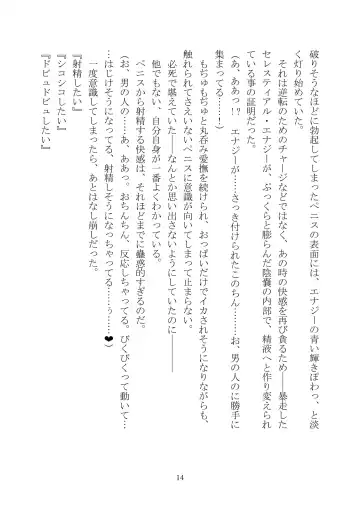 破りそうなほどに勃起してしまったペニスの表面には、エナジーの青い輝きぽわっ、と淡
く灯り始めていた。
それは逆転のためのチャージなどではなく、あの時の快感を再び貪るため――暴走した
セレスティアル・エナジーが、ぷっくらと膨らんだ陰嚢の内部で、精液へと作り変えられ
ている事の証明だった。
（あ、ああっ!?　エナジーが……さっき付けられたこのちん……お、男の人のに勝手に
集まってる……！）
もぢゅもぢゅと丸呑み愛撫を続けられ、おっぱいだけでイカされそうになりながらも、
触れられてさえいないペニスに意識が向いてしまって止まらない。
必死で堪えていた――なんとか思い出さないようにしていたのに――
他でもない、自分自身が一番よくわかっている。
ペニスから射精する快感は、それほどまでに蠱惑的すぎるのだ。
（お、男の人の……あ、ああっ。おちんちん、反応しちゃってる。びくびくって動いて…
…はじけそうになってる、射精しそうになっちゃってる……ぅ……❤
一度意識してしまったら、あとはなし崩しだった。
『射精したい』
『シコシコしたい』
『ドピュドピュしたい』
14